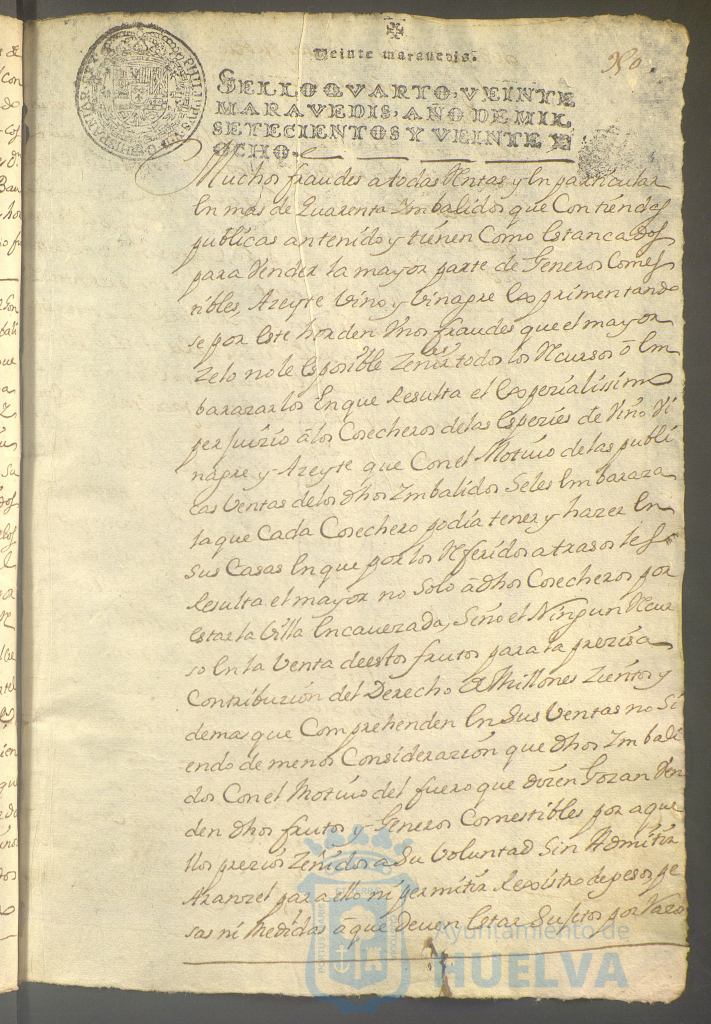 Veinte maravedis.
SELLO QVARTO, VEINTE
MARAVEDIS, AÑO DE MIL
SETECIENTOS Y VEINTE Y
OCHO.
Muchos fraudes a todas Rentas y en particular
en mas de Quarenta Imbalidos que Con tiendas
publicas an tenido y tienen Como estancados
para Vender la mayor parte de Generos Comes
tibles, Azeyte Vino y Vinagre exprimentando
se por este horden Unos fraudes que el mayor
Zelo no le es posible Zeñir todos los Recursos ô Em
barazarlos En que Resulta el espezialissimo
perjuizio â los Cosecheros de las espezies de Vino Vi
nagre y Azeyte que Con el Motivo de las publi
cas Ventas de los dhos Imbalidos se les Embaraza
la que Cada Cosechero podia tener y hazer En
sus Casas En que por los Referidos atrasos les
Resulta el mayor no solo â dhos Cosecheros por
estar la Villa Encavezada, Sino el Ningun Recur
so En la Venta de estos frutos para la preziss
Contribuzion del Derecho de Millones Zientos y
demas que Comprehenden En sus Ventas no Si
endo de menos Considerazion que dhos Imbali
dos Con el Motivo del fuero que dizen Gozan Ven
den dhos frutos y Generos Comestibles por aque
llos prezios Zeñidos a Su Voluntad Sin Admitir
Aranzel para ello ni permitir Rexistro de pesos pe
sas ni Medidas â que deven estar Sujetos por
Ayuntamiento de
HUELVA